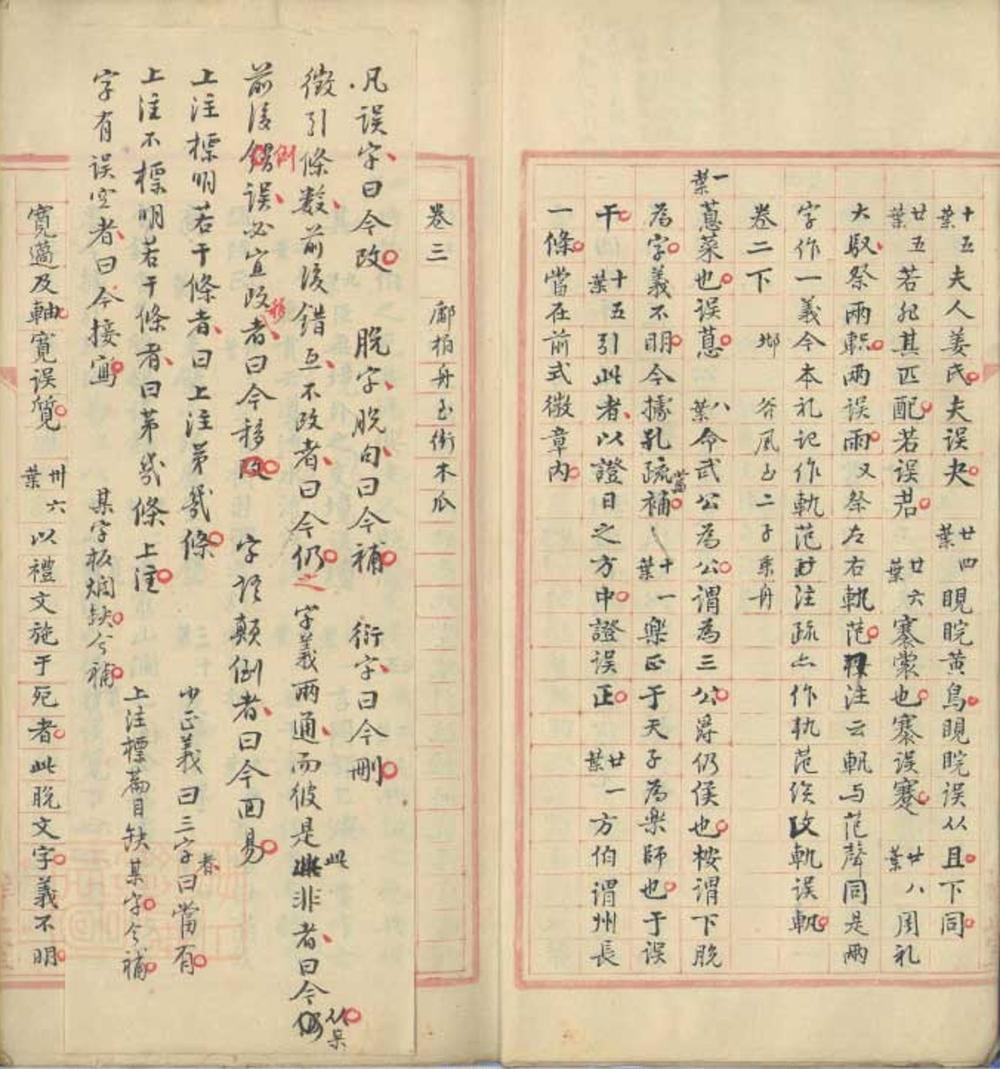 十五葉夫人姜氏夫誤夬 廿四葉睍睆黃鳥睍睆誤从且下同
廿五葉若非其匹配若誤君 廿六葉褰裳也褰誤蹇 廿八葉周礼
大馭祭兩軹兩誤雨又祭左右軌范注云軓与范聲同是兩
字作一義今本礼记作軌范注疏亦作軌范误
卷二下 邶 谷風至二子乘舟
一葉蔥菜也誤蒽 八葉命武公為公謂為三公爵仍侯也桉謂下脫
為字義不明今據孔疏補 十一葉籥樂正于天子為樂師也于誤
干 十五葉引此者以證日之方中證誤正 廿一葉方伯謂州長
一條當在前式微章內
卷三 鄘柏舟至衛木瓜
凡誤字曰今改 脫字脫句曰今補 衍字曰今刪
徵引條數前後錯互不改者曰今仍之 字義兩通而彼是此非者曰今从某
前後倒誤必宜移者曰今移改 字語顛倒者曰今回易
上注標明若干條者曰上注第幾條 少正義曰三字者曰當有
上注不標明若干條者曰第幾條上注 上注標篇目缺某字今補
字有誤空者曰今接寫 某字板爛缺今補
寬邁及軸寬誤質 卅六葉以禮文施于死者此脫文字義不明